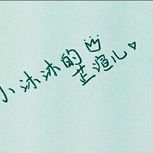 小沐沐的
芷渲儿